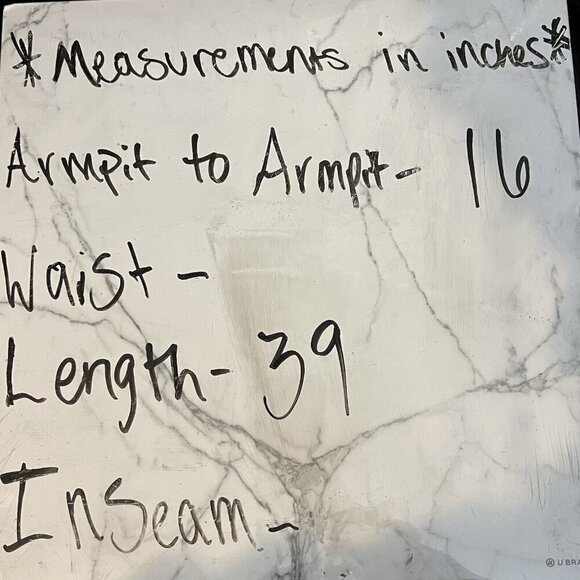 *Measurements in inches*
Armpit to Armpit- 16
Waist -
Length- 39
Inseam-
U BRA